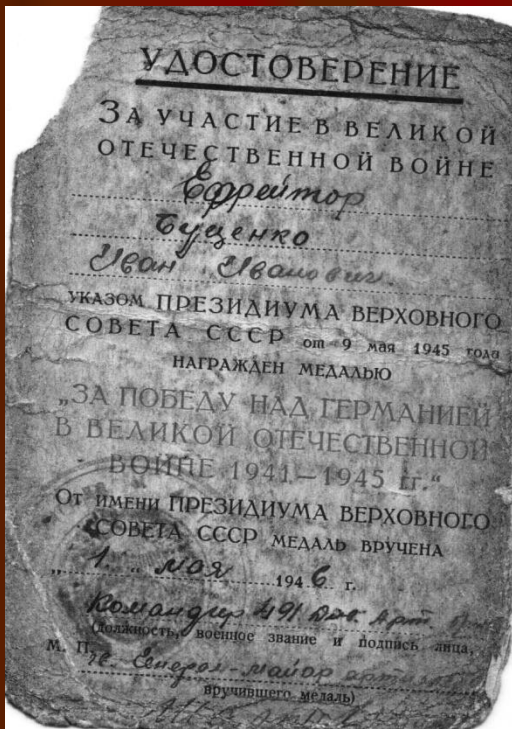 УДОСТОВЕРЕНИЕ
ЗА УЧАСТИЕ В ВЕЛИКОЙ
ОТЕЧЕСТВЕННОЙ ВОЙНЕ
Ефрейтор
Буценко
Иван Иванович.
УКАЗОМ ПРЕЗИДИУМА ВЕРХОВНОГО
СОВЕТА СССР от 9 мая 1945 года
НАГРАЖДЕН МЕДАЛЬЮ
„ЗА ПОБЕДУ НАД ГЕРМАНИЕЙ
В ВЕЛИКОЙ ОТЕЧЕСТВЕННОЙ
ВОЙНЕ 1941—1945 гг.“
ОТ ИМЕНИ ПРЕЗИДИУМА ВЕРХОВНОГО
СОВЕТА СССР МЕДАЛЬ ВРУЧЕНА
„1“ мая 1946 г.
Командир 491 Арт.
(должность, военное звание и подпись лица,
М. П. Генерал-майор
вручившего медаль)